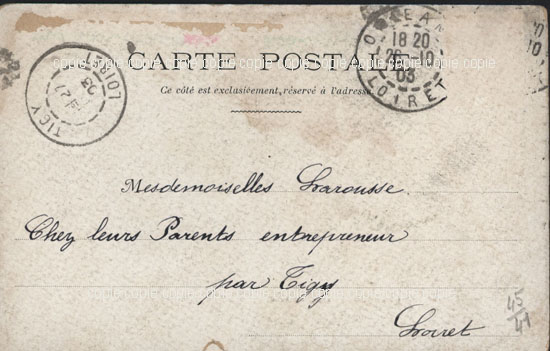 CARTE POSTALE
Ce côté est exclusivement réservé à l'adresse
ORLEANS
18 20
26 -10
03
LOIRET
TIGY
LOIRET
03
Mesdemoiselles Larousse
Chez leurs Parents entrepreneur
par Tigy
Loiret
45
41
copie copie copie copie copie copie copie copie copie